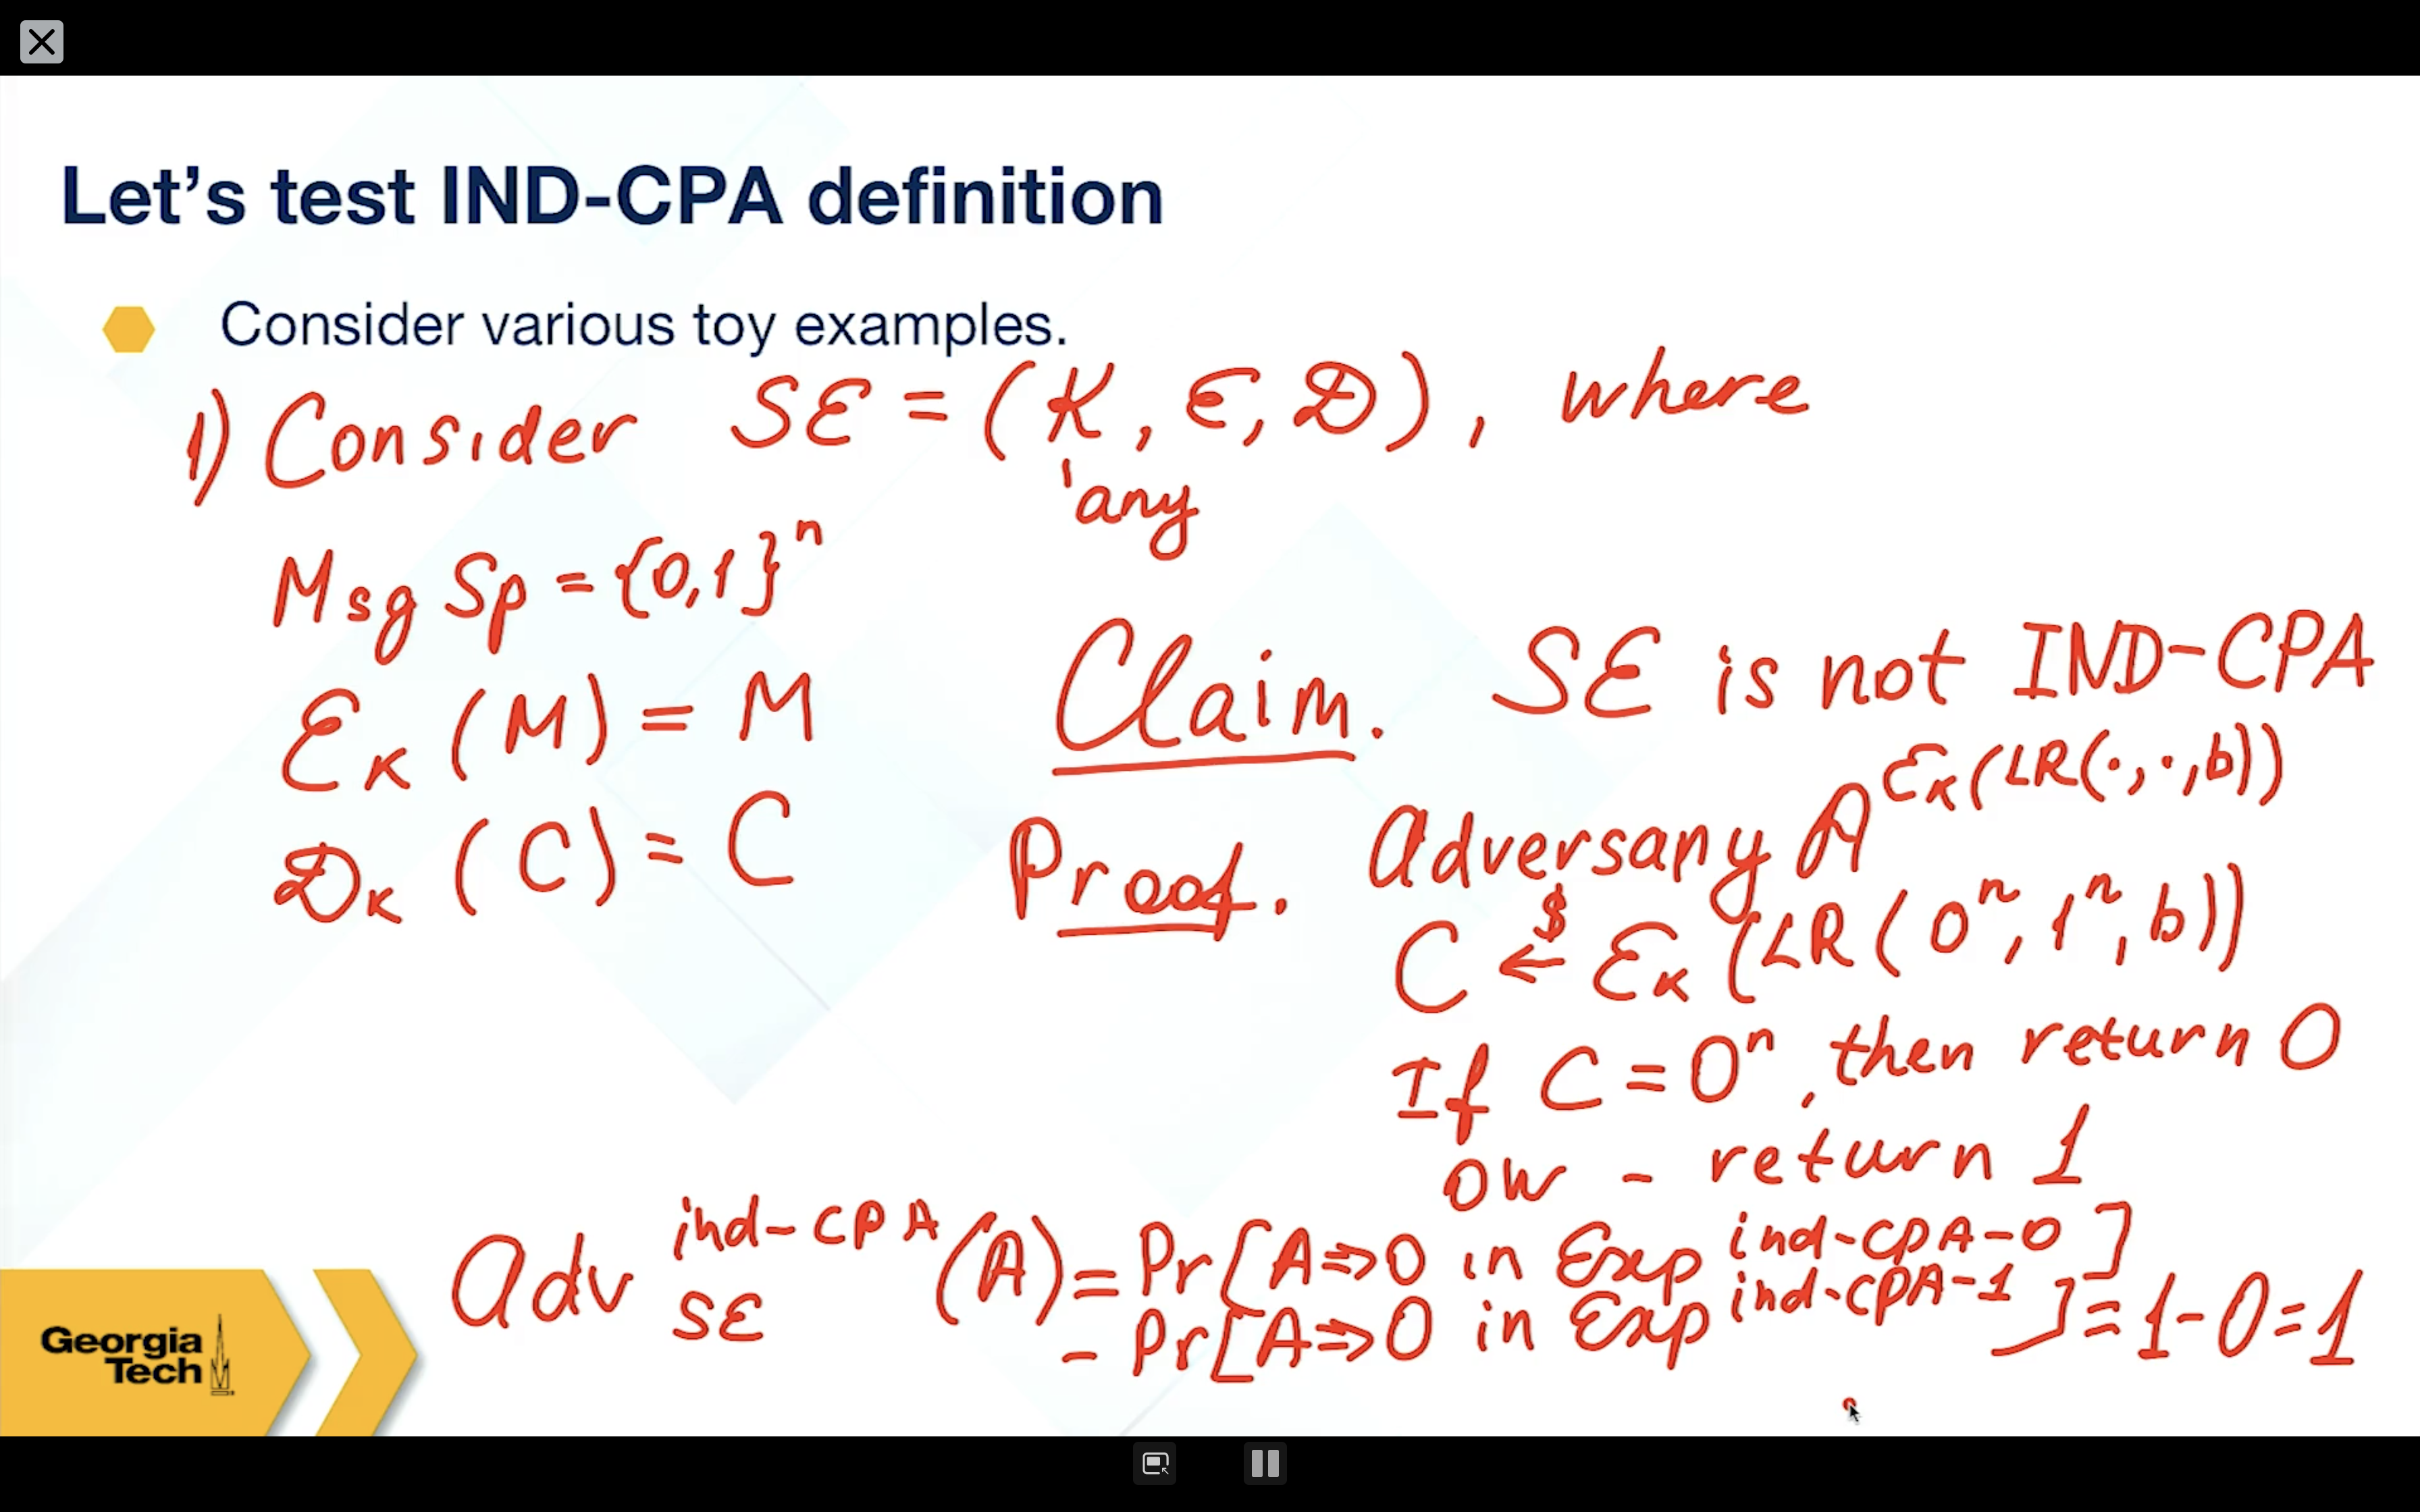 Let's test IND-CPA definition
Consider various toy examples.
1) Consider SE = (K, E, D), where
any
Msg Sp = {0,1}^n
E_K (M) = M
D_K (C) = C
Claim. SE is not IND-CPA
Proof. Adversary A^{E_K(LR(·,·,b))}
C ←$ E_K (LR(0^n, 1^n, b))
If C = 0^n, then return 0
OW - return 1
Adv_{SE}^{ind-CPA} (A) = Pr[A⇒0 in Exp^{ind-CPA-0}]
- Pr[A⇒0 in Exp^{ind-CPA-1}] = 1-0=1
Georgia
Tech